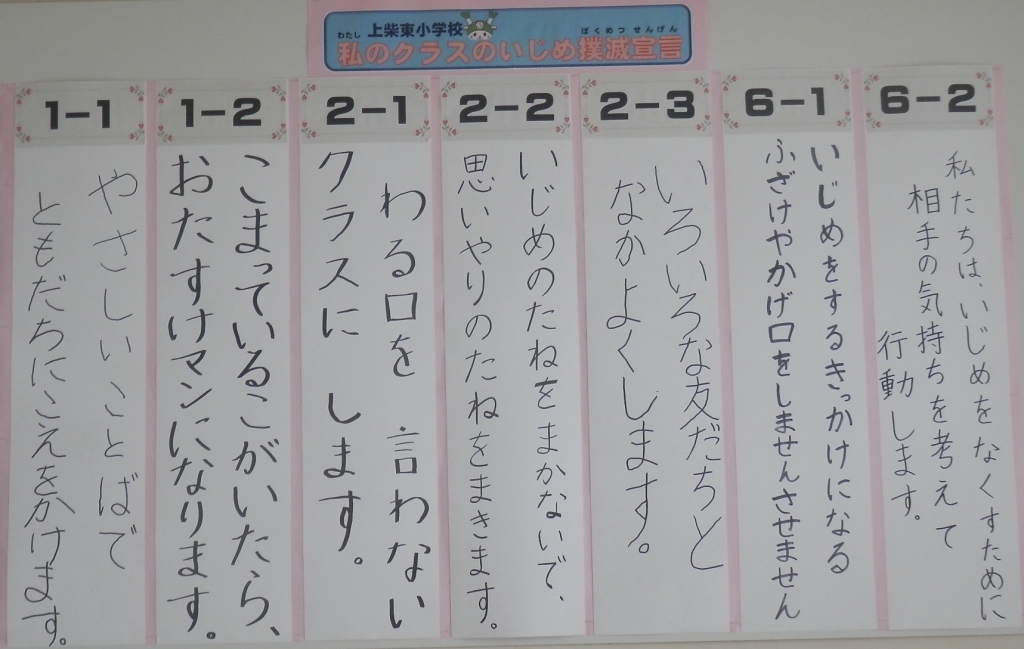 上柴東小学校
わたし ぼくめつ せんげん
私のクラスのいじめ撲滅宣言
1-1
やさしいことばで
ともだちにこえをかけます。
1-2
こまっているこがいたら、
おたすけマンになります。
2-1
わる口を 言わない
クラスに します。
2-2
いじめのたねをまかないで、
思いやりのたねをまきます。
2-3
いろいろな友だちと
なかよくします。
6-1
いじめをするきっかけになる
ふざけやかげ口をしませんさせません
6-2
私たちは、いじめをなくすために
相手の気持ちを考えて
行動します。